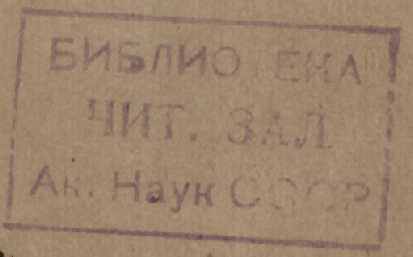 БИБЛИОТЕКА
ЧИТ. ЗАЛ
Ак. Наук СССР